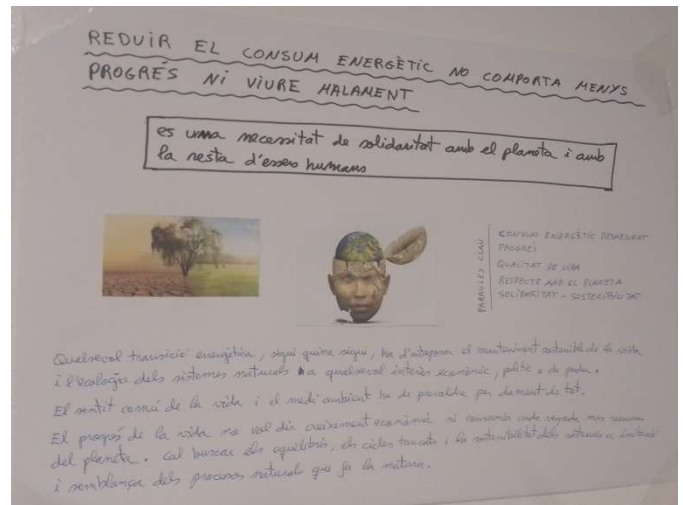 REDUIR EL CONSUM ENERGÈTIC NO COMPORTA MENYS
PROGRÉS NI VIURE MALAMENT
es una necessitat de solidaritat amb el planeta i amb
la resta d'essers humans
PARAULES CLAU
CONSUM ENERGÈTIC DESMESURAT
PROGRES
QUALITAT DE VIDA
RESPECTE AMB EL PLANETA
SOLIDARITAT - SOSTENIBILITAT
Qualsevol transició energètica, sigui quina sigui, ha d'anteposar el manteniment sostenible de la vida
i l'ecologia dels sistemes naturals a qualsevol interès econòmic, polític o de poder.
El sentit comú de la vida i el medi ambient ha de prevaldre per damunt de tot.
El progrés de la vida no vol dir creixement econòmic ni consumir cada vegada més recursos
del planeta. Cal buscar els equilibris, els cicles tancats i la sostenibilitat dels sistemes a imitació
i semblança dels processos naturals que fa la natura.